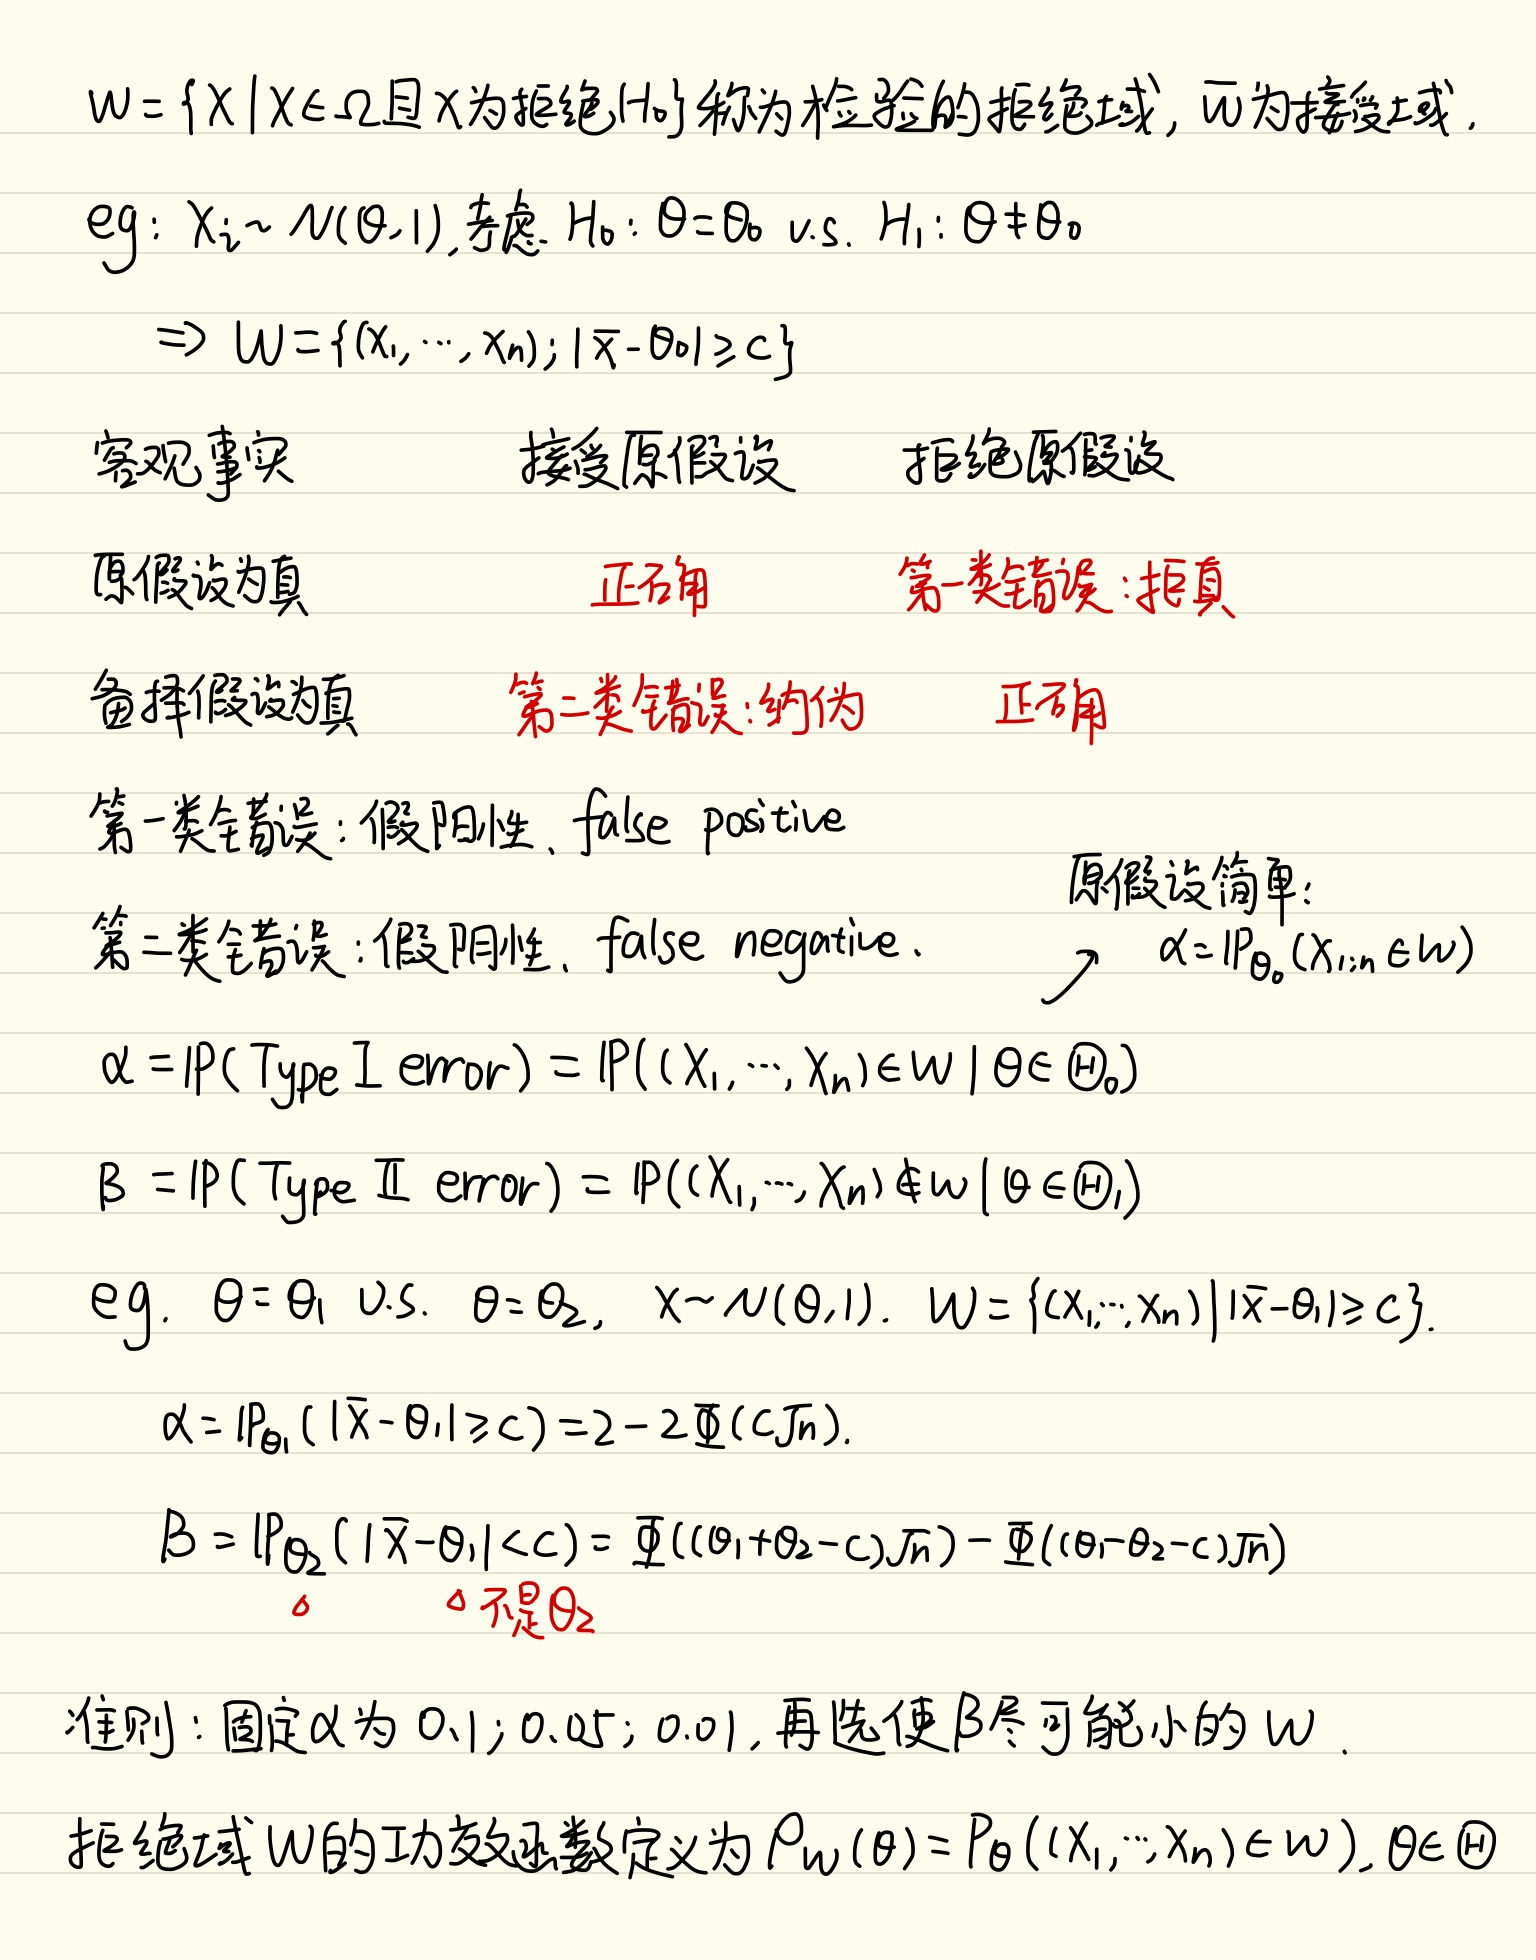 W={X|X∈Ω且X为拒绝H₀}称为检验的拒绝域, W̅为接受域.
eg: Xᵢ~N(θ,1), 考虑 H₀: θ=θ₀ v.s. H₁: θ≠θ₀
⇒ W={(x₁,…,xₙ); |x̅-θ₀|≥c}
客观事实 接受原假设 拒绝原假设
原假设为真 正确 第一类错误:拒真
备择假设为真 第二类错误:纳伪 正确
第一类错误:假阳性、false positive
原假设简单:
第二类错误:假阴性、false negative.
↗ α=P_θ₀(X₁:ₙ∈W)
α=P(Type I error)=P((X₁,…,Xₙ)∈W|θ∈Θ₀)
β=P(Type II error)=P((X₁,…,Xₙ)∉W|θ∈Θ₁)
eg. θ=θ₁ v.s. θ=θ₂, X~N(θ,1). W={(x₁,…,xₙ)||x̅-θ₁|≥c}.
α=P_θ₁(|x̅-θ₁|≥c)=2-2Φ(c√n).
β=P_θ₂(|x̅-θ₁|<c)=Φ((θ₁+θ₂-c)√n)-Φ((θ₁-θ₂-c)√n)
△ △不是θ₂
准则:固定α为0.1;0.05;0.01,再选使β尽可能小的W.
拒绝域W的功效函数定义为ρ_W(θ)=P_θ((X₁,…,Xₙ)∈W),θ∈Θ